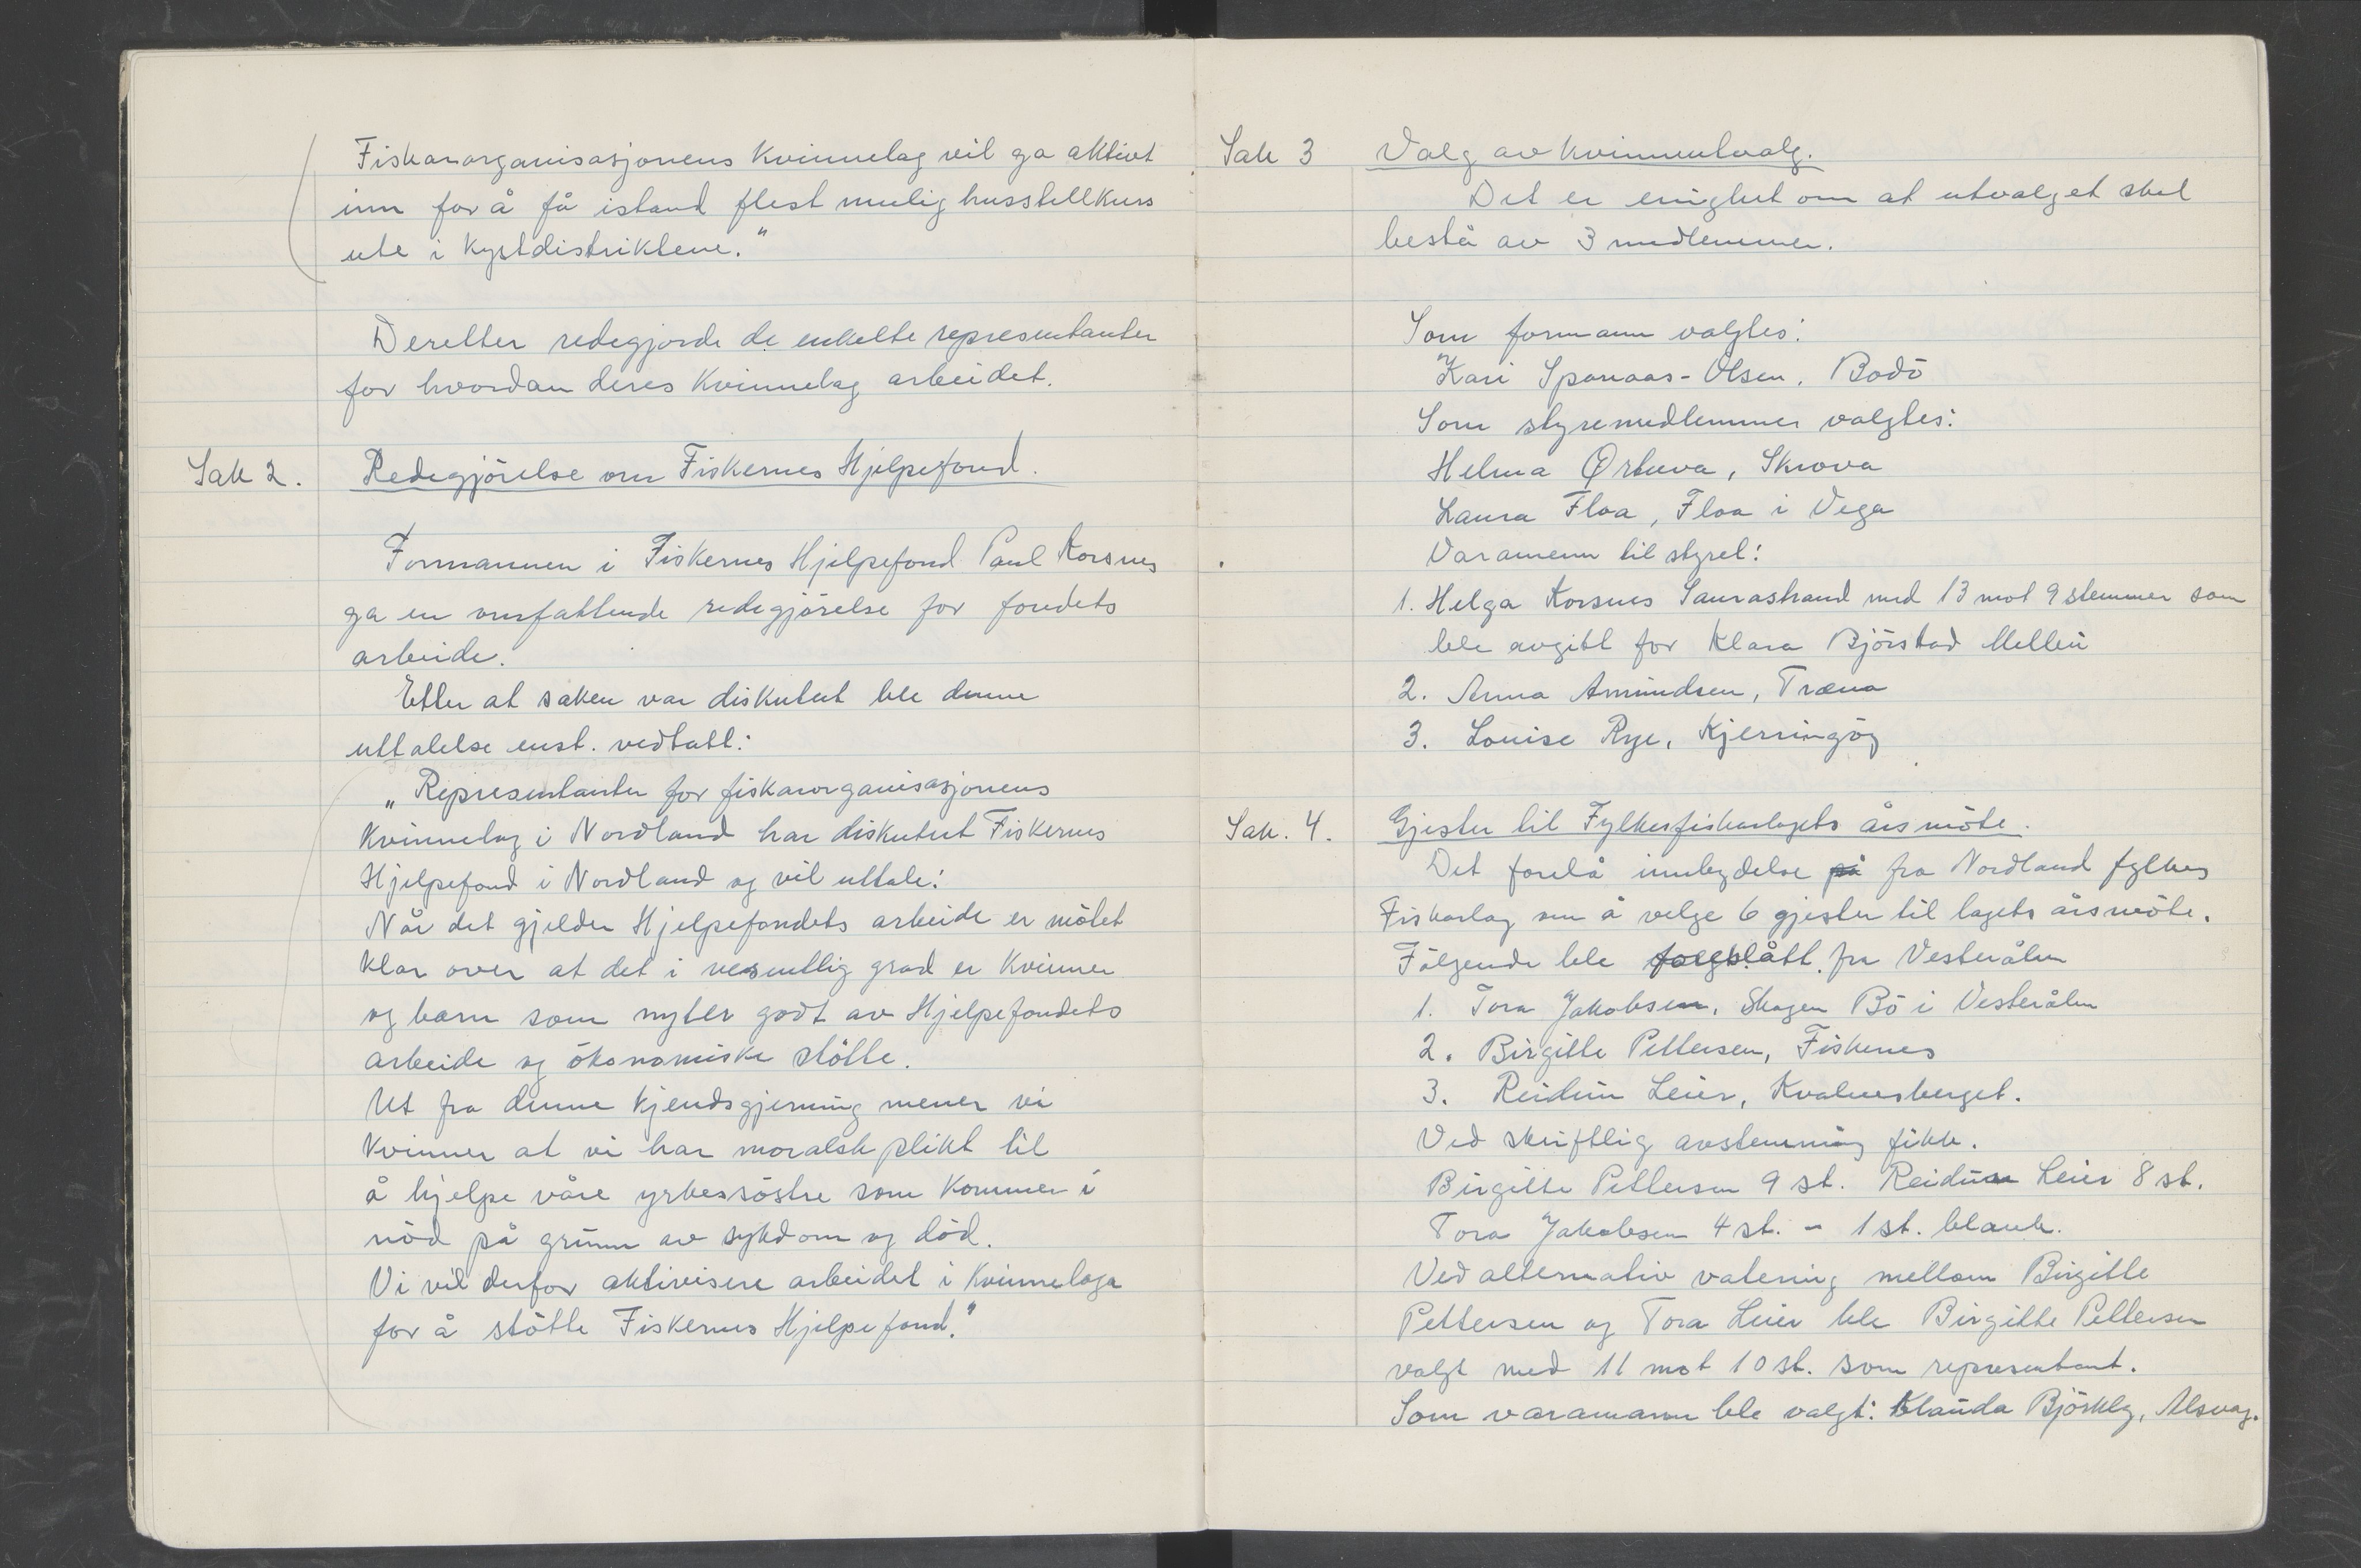 Fiskarorganisasjonens Kvinnelag vil ga aktivt
inn for å få istand flest mulig husstellkurs
ute i Kystdistriktene."
Deretter redegjorde de enkelte representanter
for hvordan deres Kvinnelag arbeidet.
Sak 2. Redegjörelse om Fiskernes Hjelpefond.
Formannen i Fiskernes Hjelpefond Paul Korsnes
ga en omfattende redegjörelse for fondets
arbeide.
Etter at saken var diskutert ble denne
uttalelse enst. vedtatt:
„Representanter for fiskarorganisasjonens
Kvinnelag i Nordland har diskutert Fiskernes
Hjelpefond i Nordland og vil uttale:
Når det gjelder Hjelpefondets arbeide er mötet
klar over at det i vesentlig grad er Kvinner
og barn som nyter godt av Hjelpefondets
arbeide og ökonomiske stötte.
Ut fra denne kjendsgjerning mener vi
Kvinner at vi har moralsk plikt til
å hjelpe våre yrkessöstre som Kommer i
nöd på grunn av sykdom og död.
Vi vil derfor aktivisere arbeidet i Kvinnelaga
for å stötte Fiskernes Hjelpefond."
Sak 3 Valg av kvinneutvalg.
Det er enighet om at utvalget skal
bestå av 3 medlemmer.
Som formann valgtes:
Kari Spanaas-Olsen, Bodö
Som styremedlemmer valgtes:
Helma Ørtuva, Skrova
Laura Floa, Floa i Vega
Varamenn til styret:
1. Helga Korsnes Saurastrand med 13 mot 9 stemmer som
ble avgitt for Klara Björstad
2. Anna Amundsen, Træna
3. Louise Rye, Kjerringöy
Sak. 4. Gjester til Fylkesfiskarlagets årsmöte.
Det forelå innbydelse på fra Nordland fylkes
Fiskarlag om å velge 6 gjester til lagets årsmöte.
Fölgende ble foreslått fra Vesterålen
1. Tora Jakobsen, Skagen Bö i Vesterålen
2. Birgitte Pettersen, Fiskenes
3. Reidun Leier, Kvalnesberget.
Ved skriftlig avstemning fikk.
Birgitte Pettersen 9 st. Reidun Leier 8 st.
Tora Jakobsen 4 st. - 1 st. blank.
Ved alternativ votering mellom Birgitte
Pettersen og Tora Leier ble Birgitte Pettersen
valgt med 11 mot 10 st. som representant.
Som varamann ble valgt: Klauda Björkly, Alsvåg.